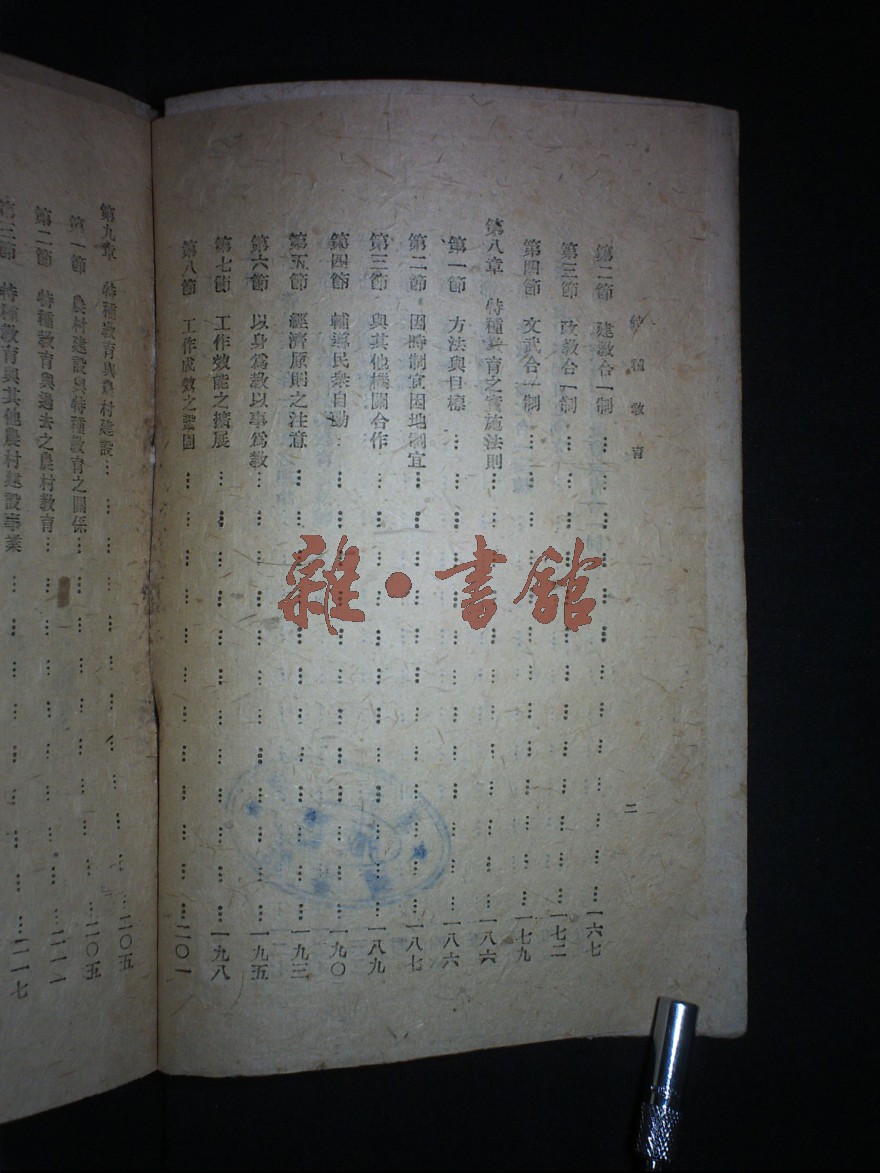 特種教育
二
第二節　建教合一制……一六七
第三節　政教合一制……一七二
第四節　文武合一制……一七九
第八章　特種教育之實施法則……一八六
第一節　方法與目標……一八六
第二節　因時制宜因地制宜……一八七
第三節　與其他機關合作……一八九
第四節　輔導民衆自動……一九〇
第五節　經濟原則之注意……一九三
第六節　以身爲教以事爲教……一九五
第七節　工作效能之擴展……一九八
第八節　工作成效之鞏固……二〇一
第九章　特種教育與農村建設……二〇五
第一節　農村建設與特種教育之關係……二〇五
第二節　特種教育與過去之農村教育……二一一
第三節　特種教育與其他農村建設事業……二一七
雜·書館